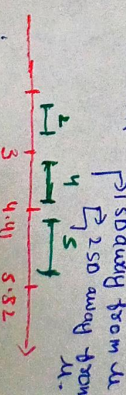 1 SD away from μ
2 SD away from
μ.
2 4 5
3 4.41 5.82